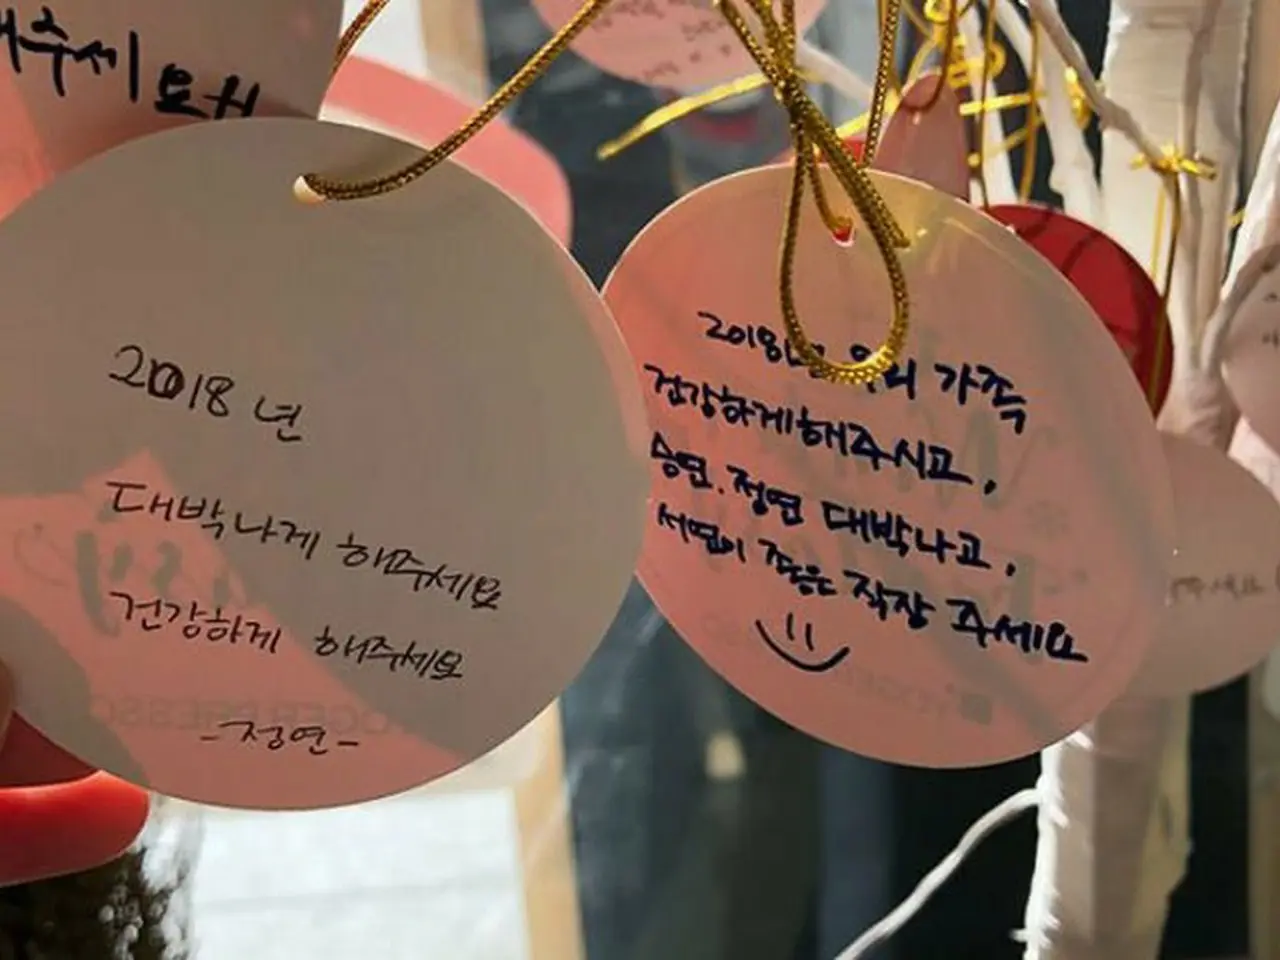 해주세요
2018년
대박나게 해주세요
건강하게 해주세요
-정연-
2018년 우리 가족
건강하게해주시고,
승연.정연 대박나고,
서연이 좋은 직장 주세요